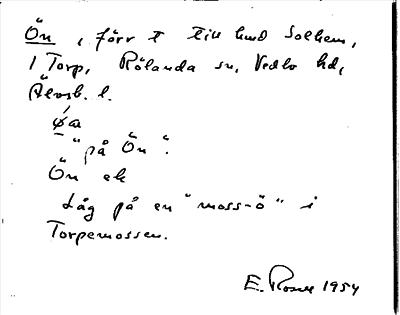 Ön, förr t till hmd Solhem,
1 Torp, Rölanda sn, Vedbo hd,
Älvsb. l.
"på Ön".
Ön ek
Låg på en "moss-ö" i
Torpemossen.
E. 1954